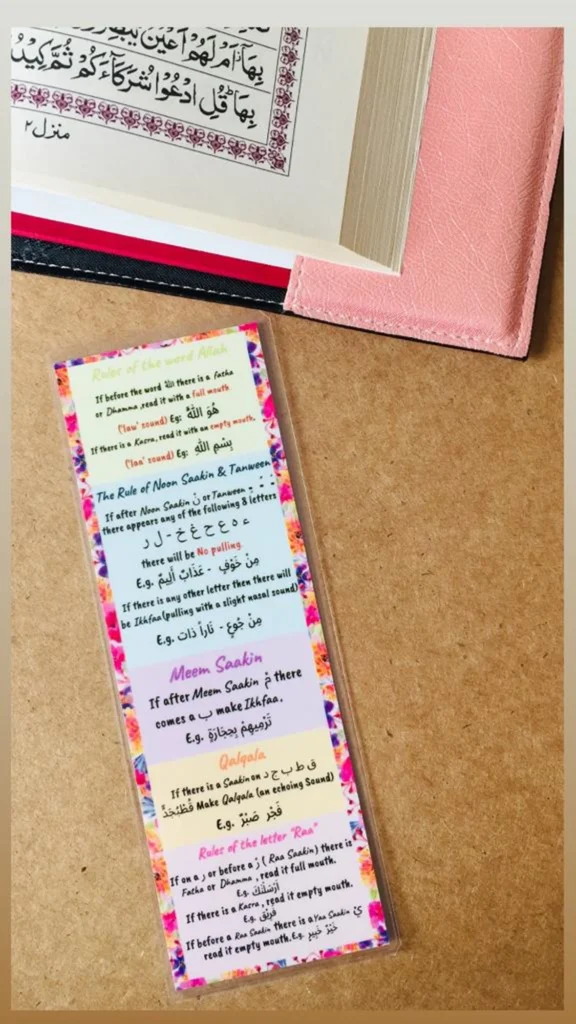 بِهَآ اَمْ لَهُمْ اَعْيُنٌ
بِهَا ؕ قُلِ ادْعُوْا شُرَكَآءَكُمْ ثُمَّ كِيْدُ
منزل ۲
Rules of the word Allah
If before the word الله there is a Fatha
or Dhamma, read it with a full mouth
('law' sound) Eg: هُوَ اللّٰهُ
If there is a Kasra, read it with an empty mouth.
('laa' sound) Eg: بِسْمِ اللّٰهِ
The Rule of Noon Saakin & Tanween
If after Noon Saakin نْ or Tanween ـً ـٍ ـٌ
there appears any of the following 8 letters
ء ه ع ح غ خ - ل ر
there will be No pulling.
E.g. مِنْ خَوْفٍ - عَذَابٌ أَلِيمٌ
If there is any other letter then there will
be Ikhfaa (pulling with a slight nasal sound)
E.g. مِنْ جُوعٍ - نَاراً ذَات
Meem Saakin
If after Meem Saakin مْ there
comes a ب make Ikhfaa.
E.g. تَرْمِيهِمْ بِحِجَارَةٍ
Qalqala
If there is a Saakin on ق ط ب ج د
Make Qalqala (an echoing Sound)
E.g. فَجْر صَبْرٌ
Rules of the letter "Raa"
If on a ر or before a رْ ( Raa Saakin) there is
Fatha or Dhamma, read it full mouth.
E.g. أَرْسَلْنَكَ
If there is a Kasra, read it empty mouth.
E.g. فَرِيْق
If before a Raa Saakin there is a Yaa Saakin يْ
read it empty mouth. E.g. خَيْرٌ خَبِيرٍ